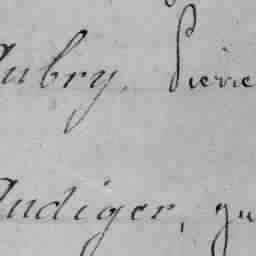 Aubry, Pierre
Audiger, gu